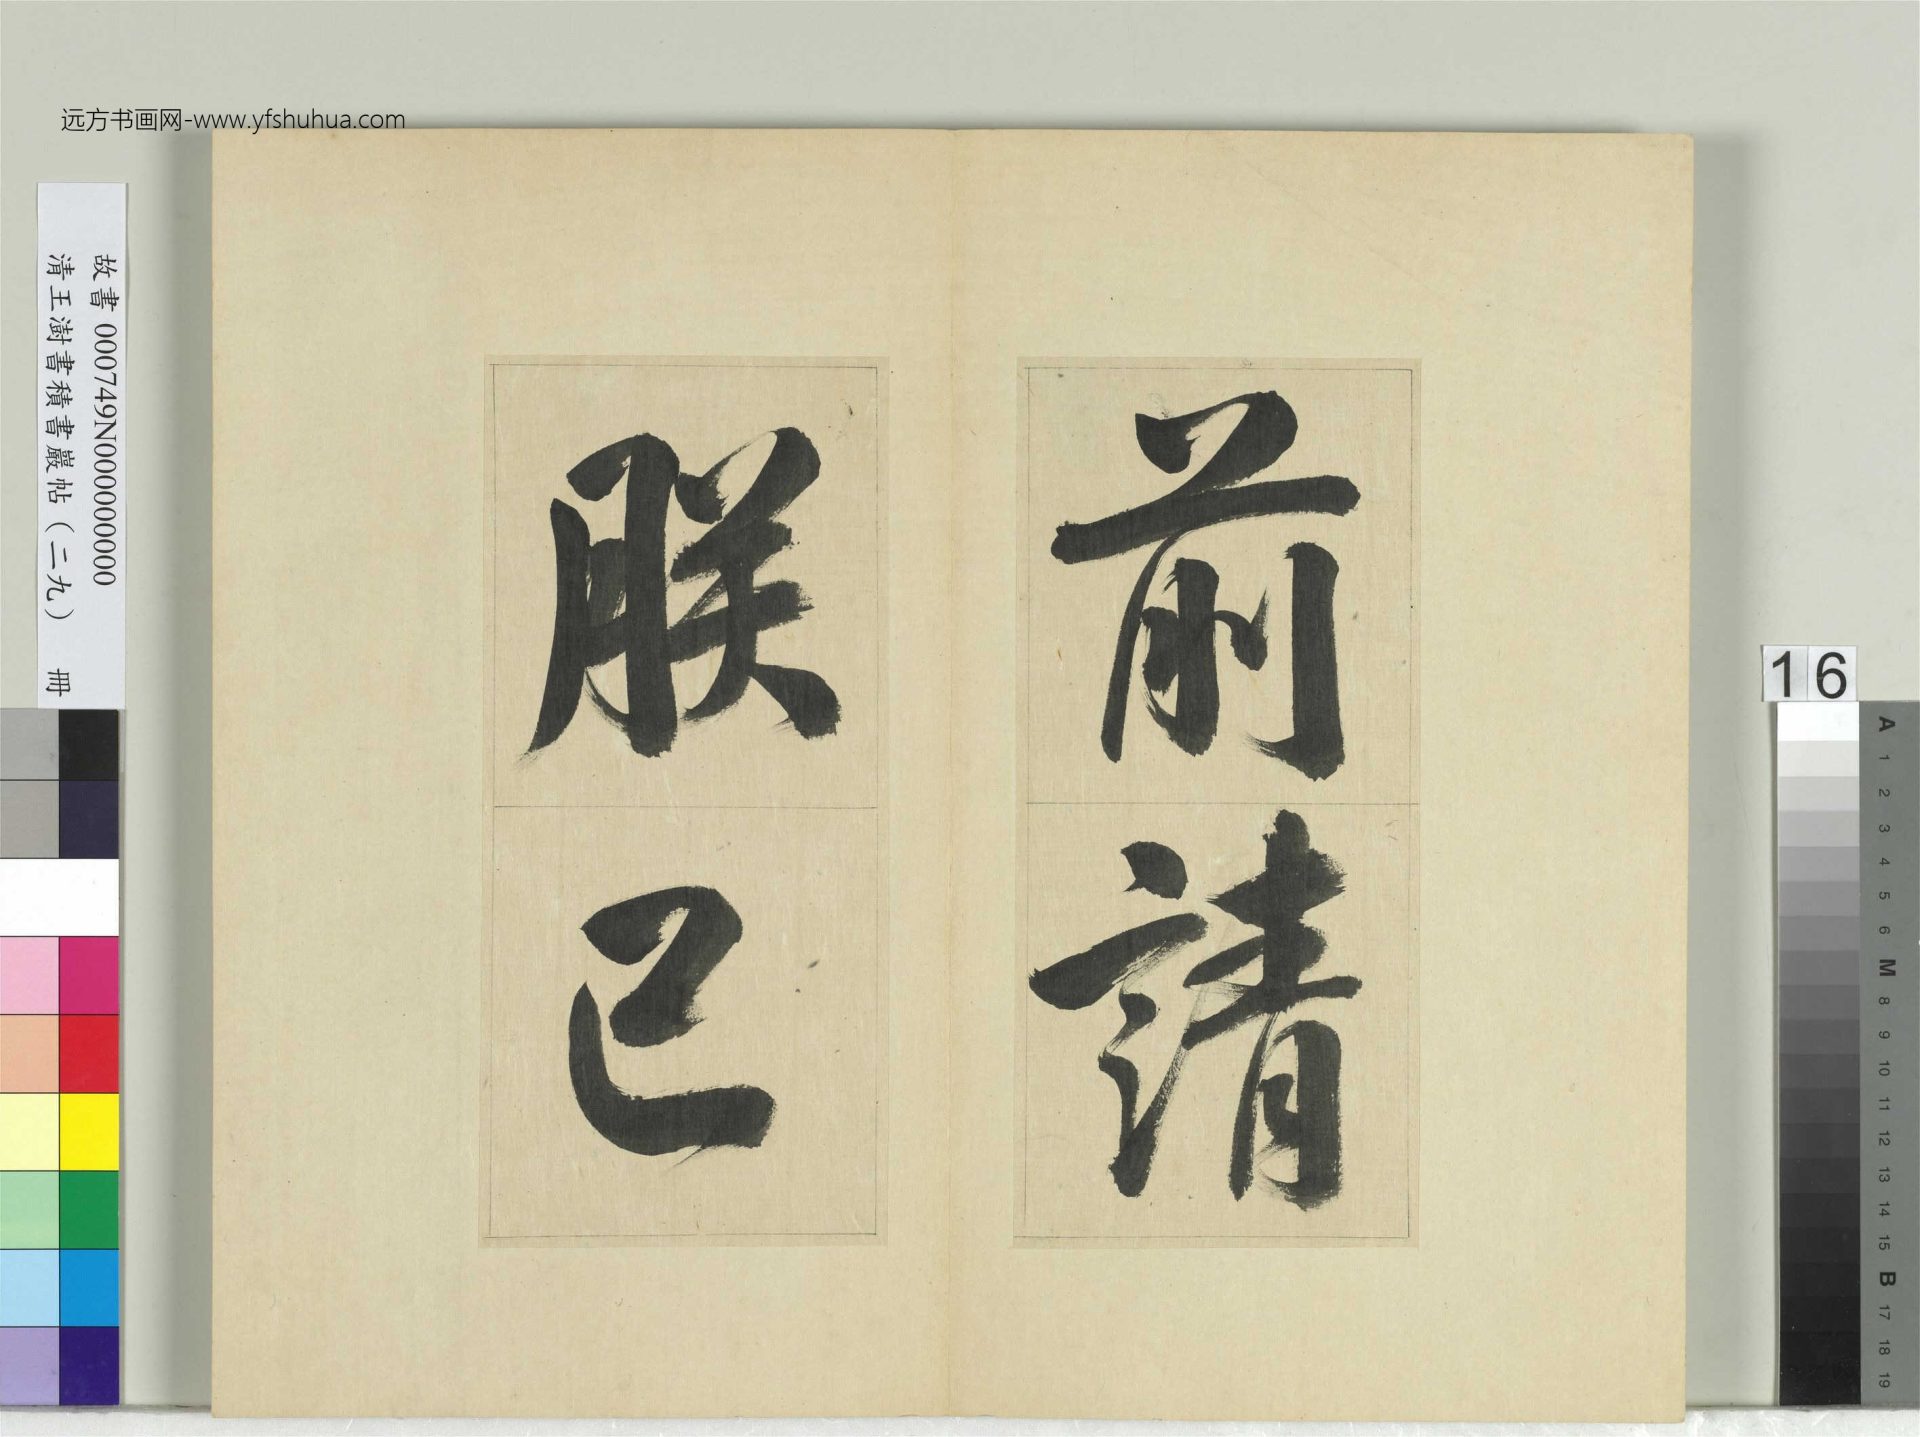 远方书画网-www.yfshuhua.com
故書 000749N000000000
清王澍書積書巖帖(二九) 冊
前請
朕已
16
A
1
2
3
4
5
6
M
8
9
10
11
12
13
14
15
B
17
18
19